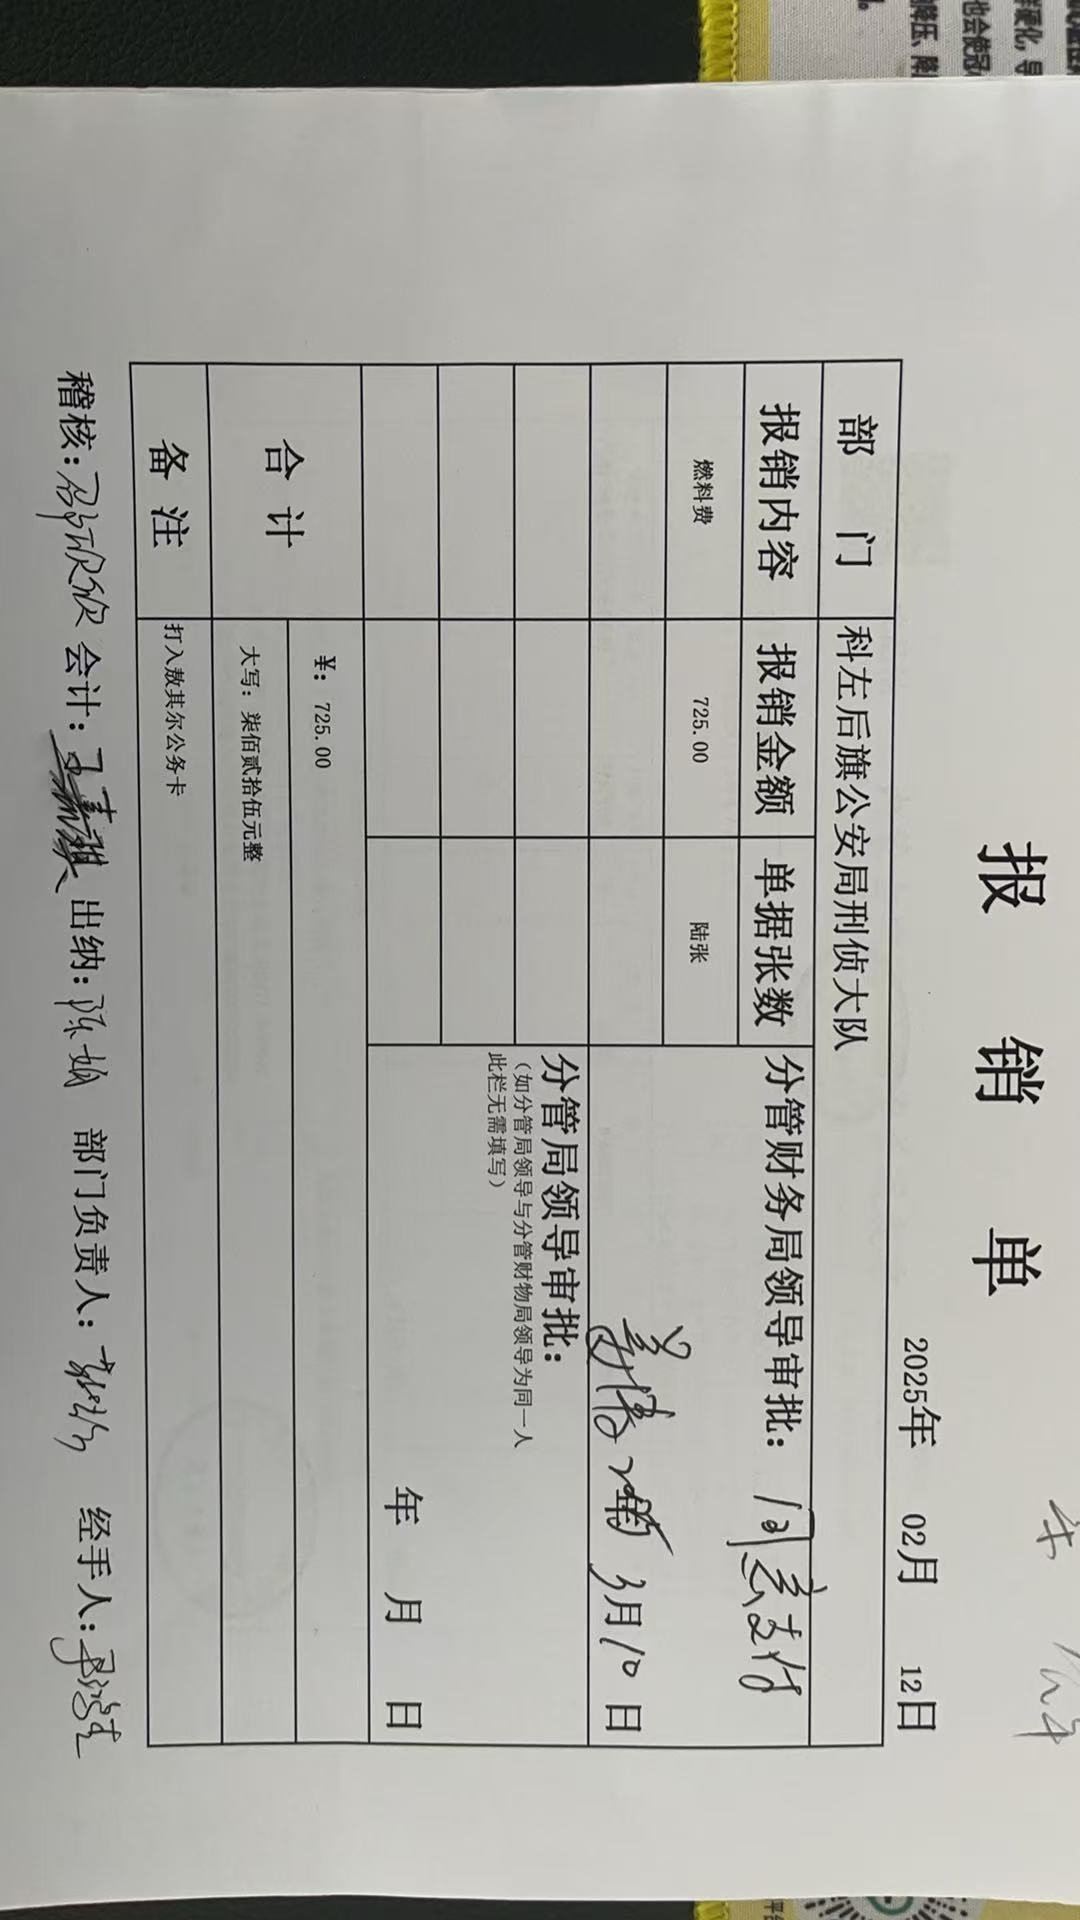 报 销 单
2025年 02月 12日
部 门 科左后旗公安局刑侦大队
报销内容 报销金额 单据张数 分管财务局领导审批: 同意支付
燃料费 725.00 陆张
年 3月10日
分管局领导审批:
(如分管局领导与分管财物局领导为同一人
此栏无需填写)
年 月 日
合 计 ¥: 725.00
大写: 柒佰贰拾伍元整
备 注 打入敖其尔公务卡
稽核: 会计: 王嘉祺 出纳: 陈娟 部门负责人: 经手人:
也会使冠
降压、降